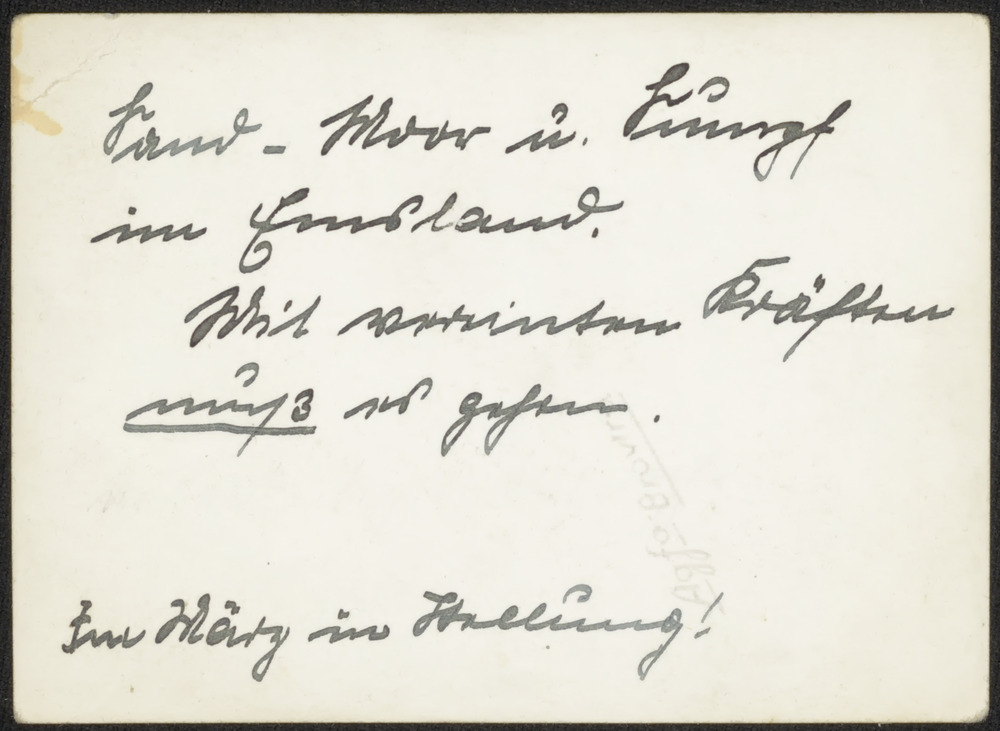 Sand - Moor u. Sumpf
im Emsland.
Mit vereinten Kräften
muß es gehen.
Im März in Stellung!
Agfa-Brovira